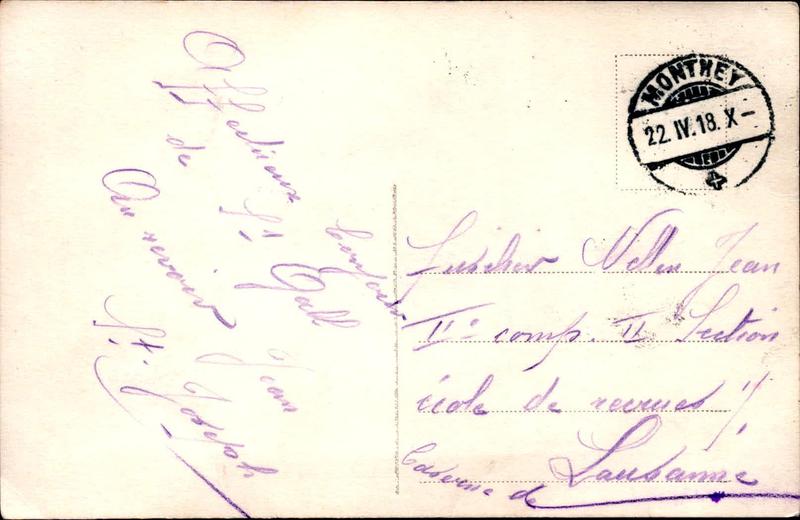 Affectueux bonjours
de St Gall
Au revoir Jean
St. Joseph
MONTHEY
22. IV. 18. X–
Fusilier Jean
IIe comp. II Section
école de recrues 1/.
Caserne de Lausanne